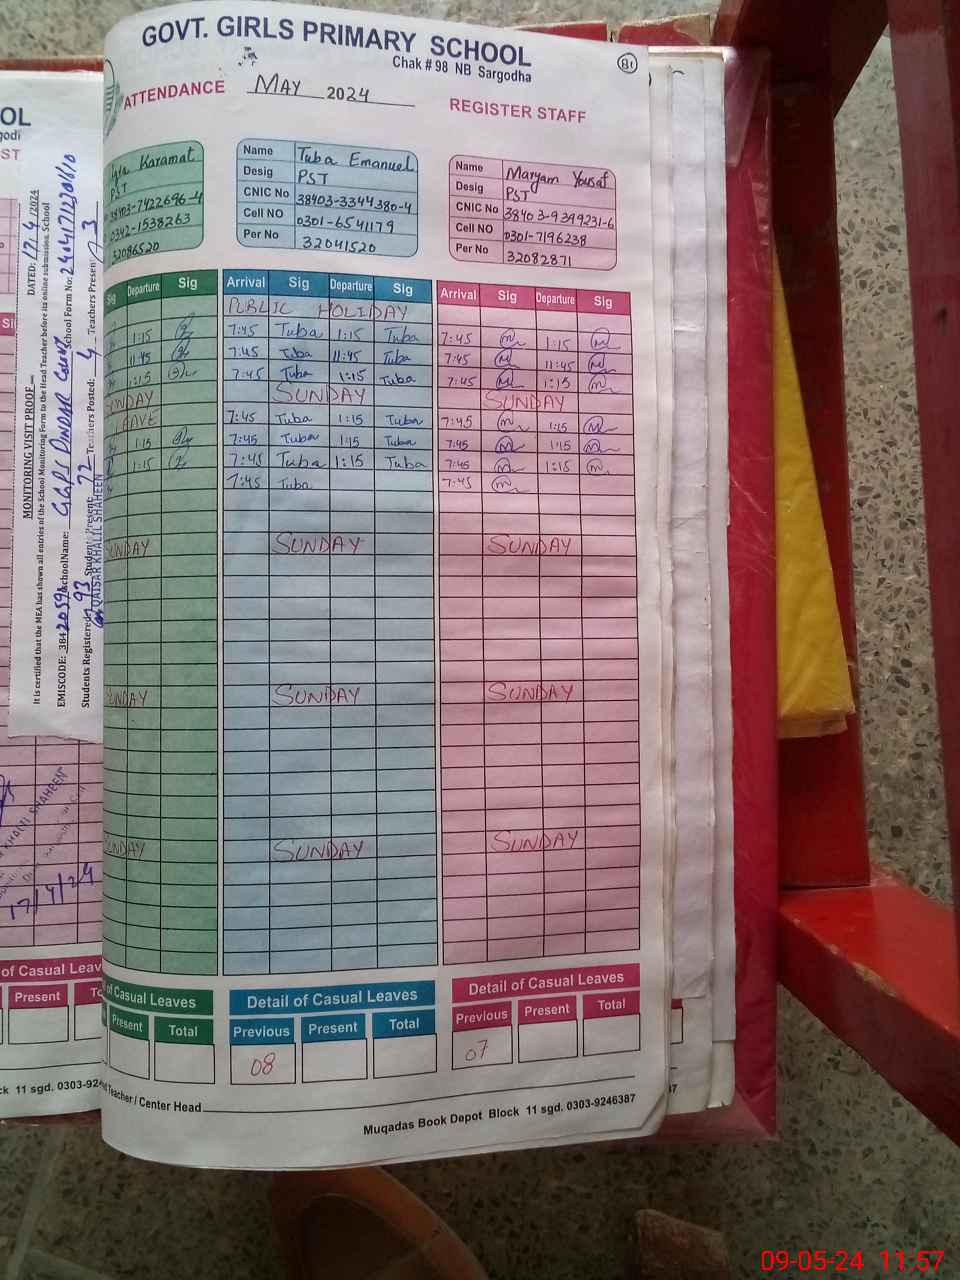 GOVT. GIRLS PRIMARY SCHOOL
Chak # 98 NB Sargodha
81
ATTENDANCE MAY 2024 REGISTER STAFF
Karamat
PST
38403-7422696-4
0342-1538263
32086520
Name Tuba Emanuel
Desig PST
CNIC No 38403-3344380-4
Cell NO 0301-6541179
Per No 32041520
Name Maryam Yousaf
Desig PST
CNIC No 38403-9399231-6
Cell NO 0301-7196238
Per No 32082871
Sig Departure Sig Arrival Sig Departure Sig Arrival Sig Departure Sig
PUBLIC HOLIDAY
1:15 7:45 Tuba 1:15 Tuba 7:45 1:15
11:45 7:45 Tuba 11:45 Tuba 7:45 11:45
1:15 7:45 Tuba 1:15 Tuba 7:45 1:15
SUNDAY SUNDAY SUNDAY
LEAVE 7:45 Tuba 1:15 Tuba 7:45 1:15
1:15 7:45 Tuba 1:15 Tuba 7:45 1:15
1:15 7:45 Tuba 1:15 Tuba 7:45 1:15
7:45 Tuba 7:45
SUNDAY SUNDAY SUNDAY
SUNDAY SUNDAY SUNDAY
SUNDAY SUNDAY SUNDAY
of Casual Leaves Detail of Casual Leaves Detail of Casual Leaves
Present Total Previous Present Total Previous Present Total
08 07
Teacher / Center Head
Muqadas Book Depot Block 11 sgd. 0303-9246387
OL
ST
MONITORING VISIT PROOF
DATED: 17/4/2024
It is certified that the MEA has shown all entries of the School Monitoring Form to the Head Teacher before its online submission. School
EMISCODE: 384 SchoolName: School Form No:
Students Registered: 93 Student Present: 72 Teachers Posted: 4 Teachers Present: 3
QAISAR KHALIL SHAHEEN
KHALIL SHAHEEN
17/4/24
of Casual Leav
Present To
ck 11 sgd. 0303-924
09-05-24 11:57